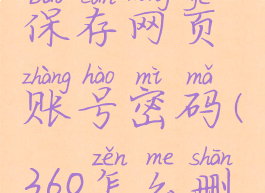 保存网页
zhàng hào mì mǎ
账号密码(
zěn me shān
360怎么删